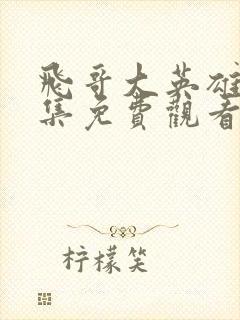 飛哥大英雄
集免費觀看
柠檬笑